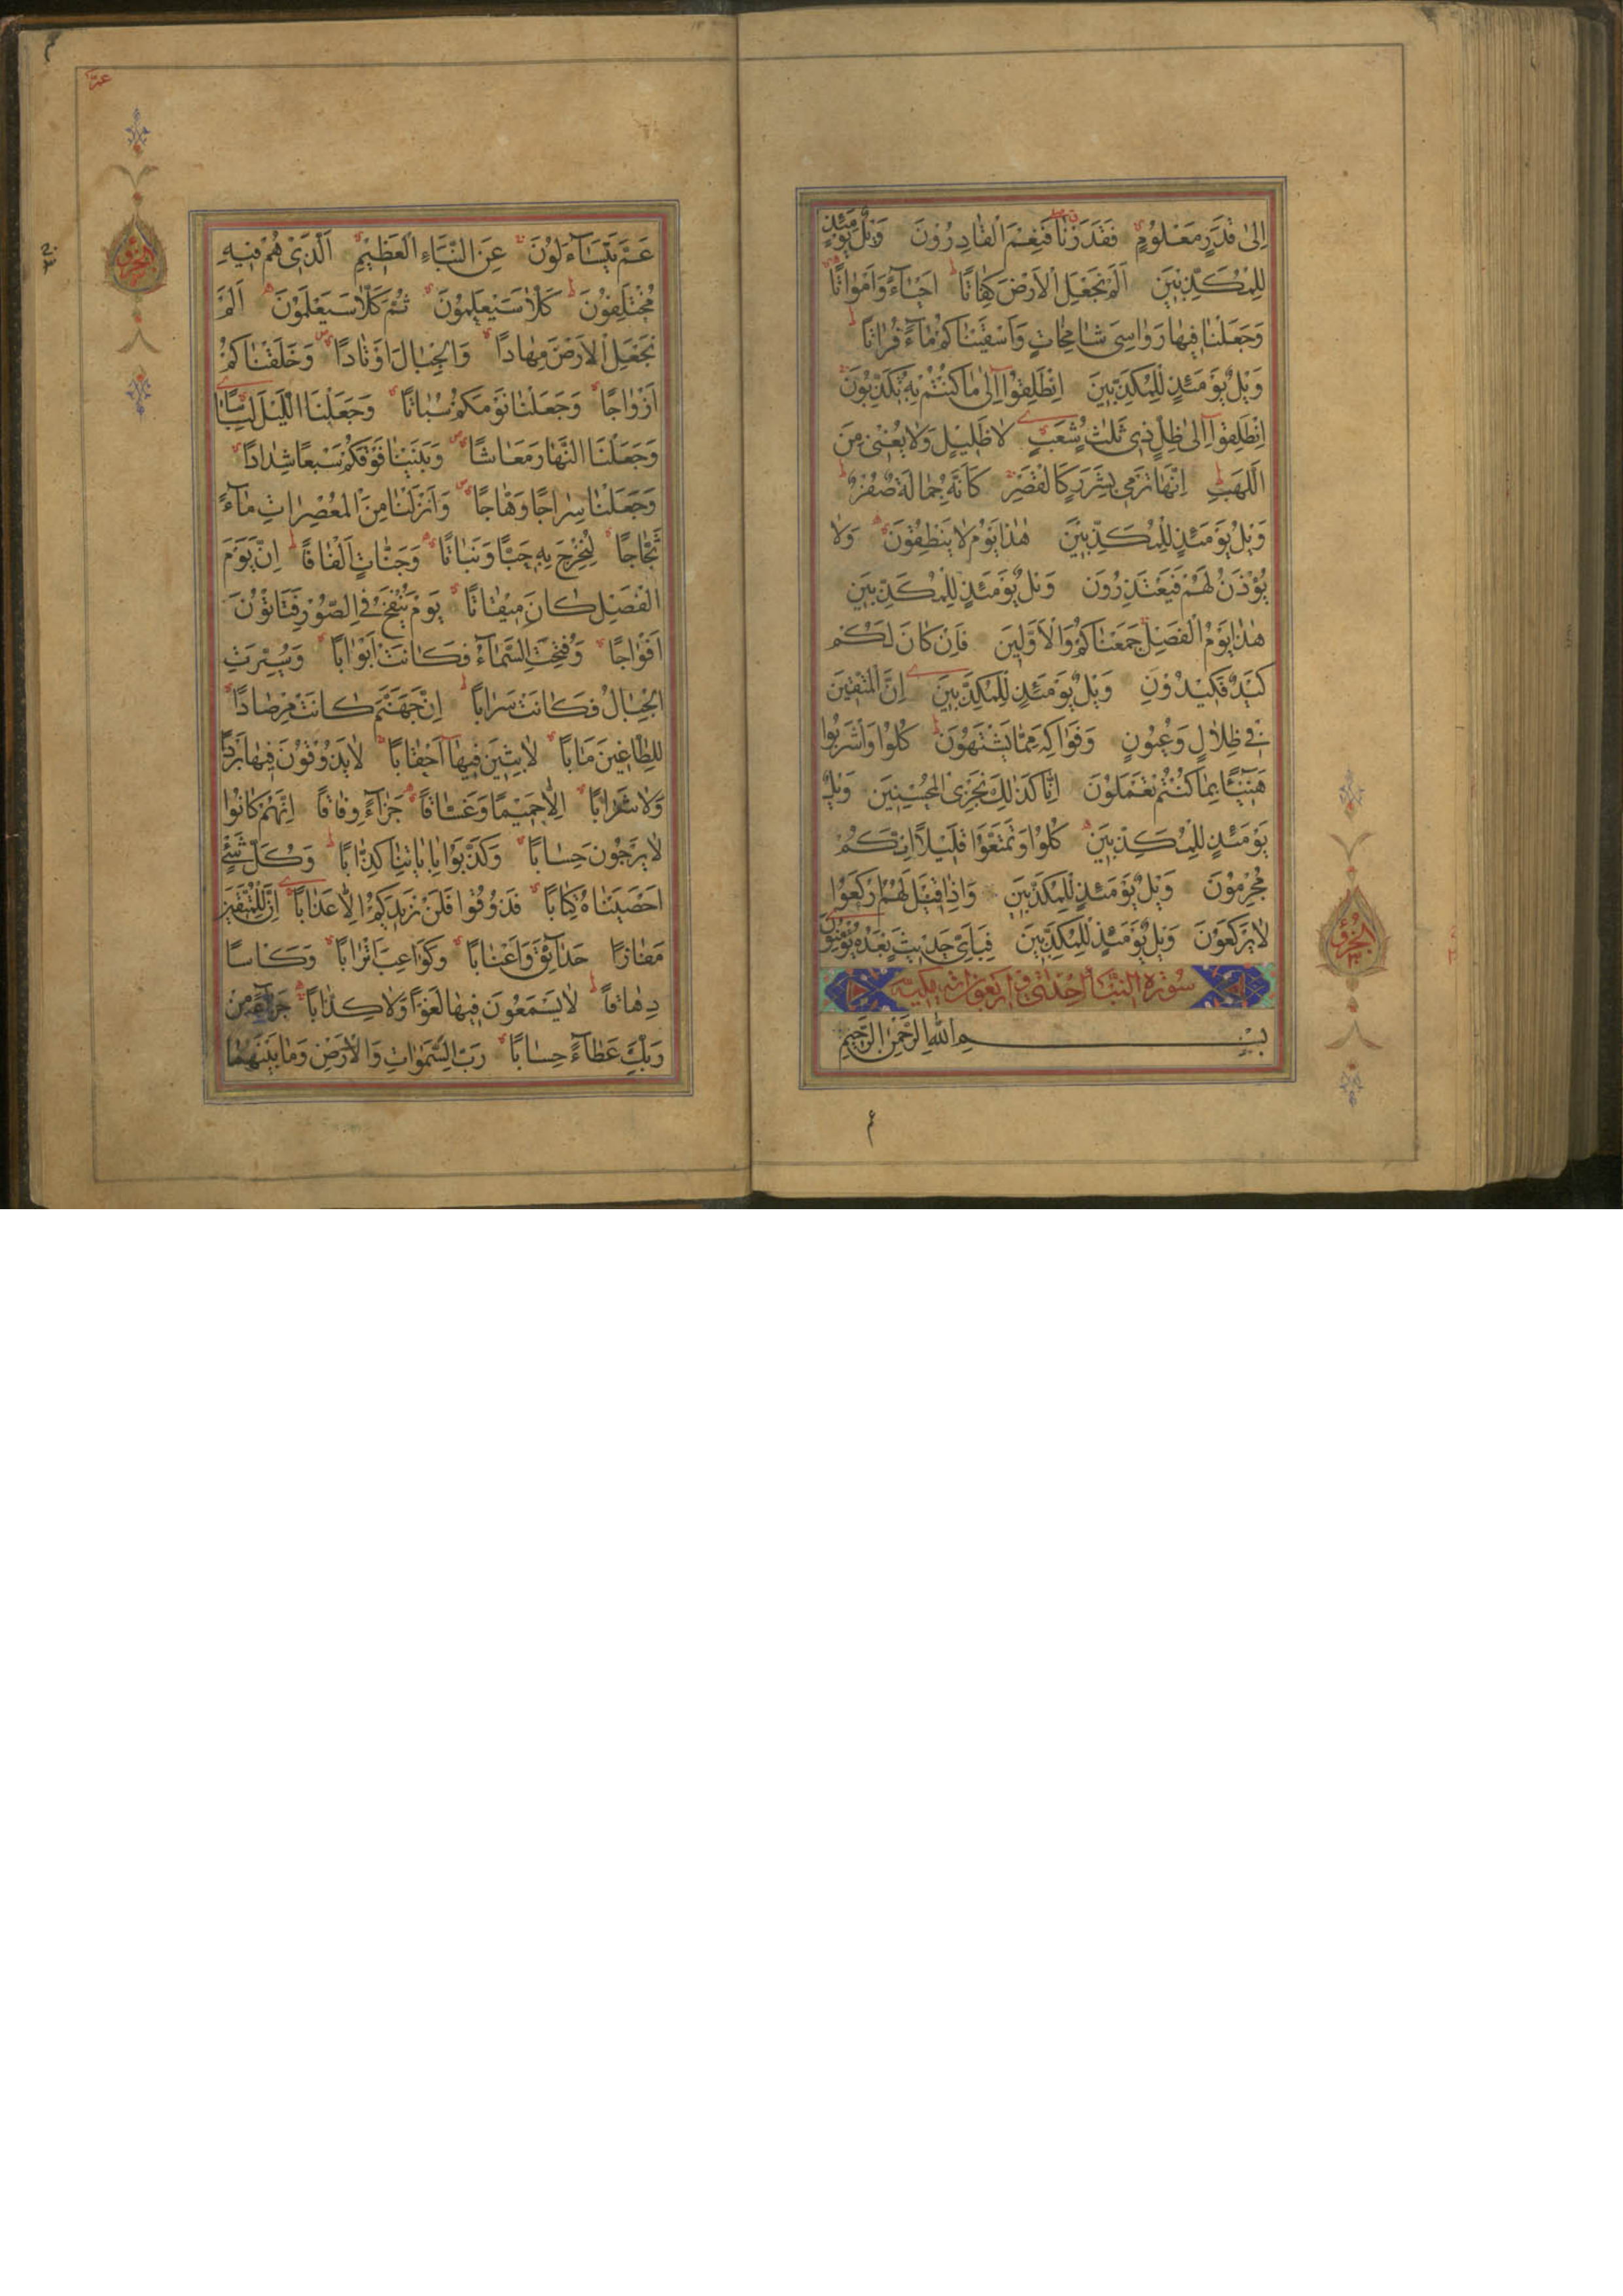 اِلىٰ قَدَرٍ مَعْلُومٍ فَقَدَرْنَا فَنِعْمَ الْقَادِرُونَ وَيْلٌ يَوْمَئِذٍ
لِلْمُكَذِّبِينَ اَلَمْ نَجْعَلِ الْاَرْضَ كِفَاتًا اَحْيَاءً وَاَمْوَاتًا
وَجَعَلْنَا فِيهَا رَوَاسِيَ شَامِخَاتٍ وَاَسْقَيْنَاكُمْ مَاءً فُرَاتًا
وَيْلٌ يَوْمَئِذٍ لِلْمُكَذِّبِينَ اِنْطَلِقُوا اِلىٰ مَا كُنْتُمْ بِهِ تُكَذِّبُونَ
اِنْطَلِقُوا اِلىٰ ظِلٍّ ذِي ثَلٰثِ شُعَبٍ لَا ظَلِيلٍ وَلَا يُغْنِي مِنَ
اللَّهَبِ اِنَّهَا تَرْمِي بِشَرَرٍ كَالْقَصْرِ كَاَنَّهُ جِمَالَةٌ صُفْرٌ
وَيْلٌ يَوْمَئِذٍ لِلْمُكَذِّبِينَ هٰذَا يَوْمُ لَا يَنْطِقُونَ وَلَا
يُؤْذَنُ لَهُمْ فَيَعْتَذِرُونَ وَيْلٌ يَوْمَئِذٍ لِلْمُكَذِّبِينَ
هٰذَا يَوْمُ الْفَصْلِ جَمَعْنَاكُمْ وَالْاَوَّلِينَ فَاِنْ كَانَ لَكُمْ
كَيْدٌ فَكِيدُونِ وَيْلٌ يَوْمَئِذٍ لِلْمُكَذِّبِينَ اِنَّ الْمُتَّقِينَ
فِي ظِلَالٍ وَعُيُونٍ وَفَوَاكِهَ مِمَّا يَشْتَهُونَ كُلُوا وَاشْرَبُوا
هَنِيئًا بِمَا كُنْتُمْ تَعْمَلُونَ اِنَّا كَذٰلِكَ نَجْزِي الْمُحْسِنِينَ وَيْلٌ
يَوْمَئِذٍ لِلْمُكَذِّبِينَ كُلُوا وَتَمَتَّعُوا قَلِيلًا اِنَّكُمْ
مُجْرِمُونَ وَيْلٌ يَوْمَئِذٍ لِلْمُكَذِّبِينَ وَاِذَا قِيلَ لَهُمُ ارْكَعُوا
لَا يَرْكَعُونَ وَيْلٌ يَوْمَئِذٍ لِلْمُكَذِّبِينَ فَبِاَيِّ حَدِيثٍ بَعْدَهُ يُؤْمِنُونَ
سُورَة النَّبَأ اِحْدٰى وَاَرْبَعُونَ اٰيَة مَكِّيَّة
بِسْمِ اللهِ الرَّحْمٰنِ الرَّحِيمِ
الجزو
٣٠
عم
عَمَّ يَتَسَاءَلُونَ عَنِ النَّبَاءِ الْعَظِيمِ الَّذِي هُمْ فِيهِ
مُخْتَلِفُونَ كَلَّا سَيَعْلَمُونَ ثُمَّ كَلَّا سَيَعْلَمُونَ اَلَمْ
نَجْعَلِ الْاَرْضَ مِهَادًا وَالْجِبَالَ اَوْتَادًا وَخَلَقْنَاكُمْ
اَزْوَاجًا وَجَعَلْنَا نَوْمَكُمْ سُبَاتًا وَجَعَلْنَا اللَّيْلَ لِبَاسًا
وَجَعَلْنَا النَّهَارَ مَعَاشًا وَبَنَيْنَا فَوْقَكُمْ سَبْعًا شِدَادًا
وَجَعَلْنَا سِرَاجًا وَهَّاجًا وَاَنْزَلْنَا مِنَ الْمُعْصِرَاتِ مَاءً
ثَجَّاجًا لِنُخْرِجَ بِهِ حَبًّا وَنَبَاتًا وَجَنَّاتٍ اَلْفَافًا اِنَّ يَوْمَ
الْفَصْلِ كَانَ مِيقَاتًا يَوْمَ يُنْفَخُ فِي الصُّورِ فَتَأْتُونَ
اَفْوَاجًا وَفُتِحَتِ السَّمَاءُ فَكَانَتْ اَبْوَابًا وَسُيِّرَتِ
الْجِبَالُ فَكَانَتْ سَرَابًا اِنَّ جَهَنَّمَ كَانَتْ مِرْصَادًا
لِلطَّاغِينَ مَاٰبًا لَابِثِينَ فِيهَا اَحْقَابًا لَا يَذُوقُونَ فِيهَا بَرْدًا
وَلَا شَرَابًا اِلَّا حَمِيمًا وَغَسَّاقًا جَزَاءً وِفَاقًا اِنَّهُمْ كَانُوا
لَا يَرْجُونَ حِسَابًا وَكَذَّبُوا بِاٰيَاتِنَا كِذَّابًا وَكُلَّ شَيْءٍ
اَحْصَيْنَاهُ كِتَابًا فَذُوقُوا فَلَنْ نَزِيدَكُمْ اِلَّا عَذَابًا اِنَّ لِلْمُتَّقِينَ
مَفَازًا حَدَائِقَ وَاَعْنَابًا وَكَوَاعِبَ اَتْرَابًا وَكَاْسًا
دِهَاقًا لَا يَسْمَعُونَ فِيهَا لَغْوًا وَلَا كِذَّابًا جَزَاءً مِنْ
رَبِّكَ عَطَاءً حِسَابًا رَبِّ السَّمٰوَاتِ وَالْاَرْضِ وَمَا بَيْنَهُمَا
الجزو